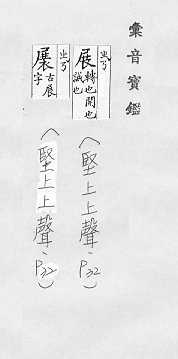 彙音寶鑑
ㄓㄢ
展 轉也開也誠也
(堅上上聲、P32)
ㄓㄢ
古展字
(堅上上聲、P32)